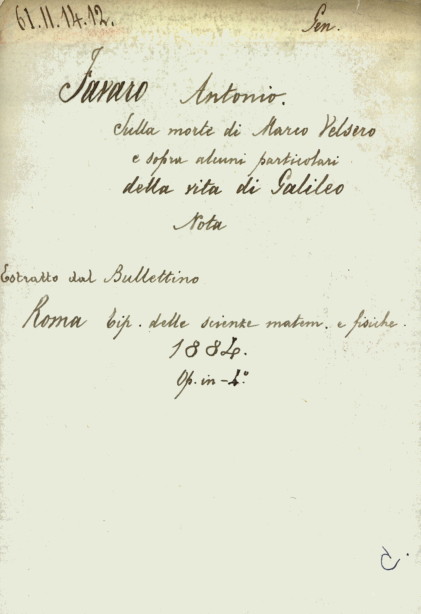 61.11.14.12.
Gen.
Favaro Antonio.
Sulla morte di Marco Velsero
e sopra alcuni particolari
della vita di Galileo
Nota
Estratto dal Bullettino
Roma Tip. delle scienze matem. e fisiche.
1884.
Op. in-4°